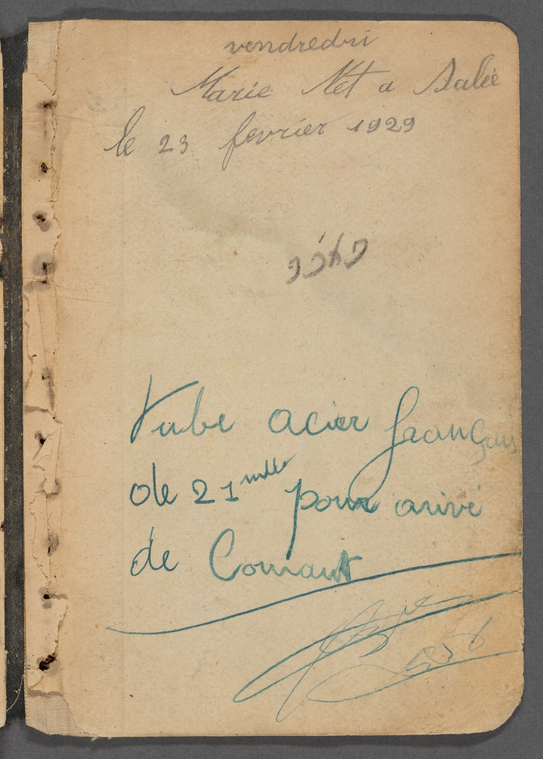 vendredri
Marie Net a Salé
le 23 fevrier 1929
Tube acier français
de 21 mlle pour arivé
de Courant